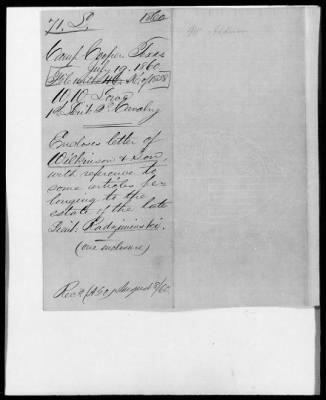 71. L. 1860
Camp Cooper, Texas
July 19. 1860.
Lowe
1st Lieut. 2d Cavalry
Encloses letter of
Wilkinson & Son,
with reference to
some articles be-
longing to the
estate of the late
Lieut. Radziminski.
(one enclosure)
Recd. (A.G.O.) August 8/60.